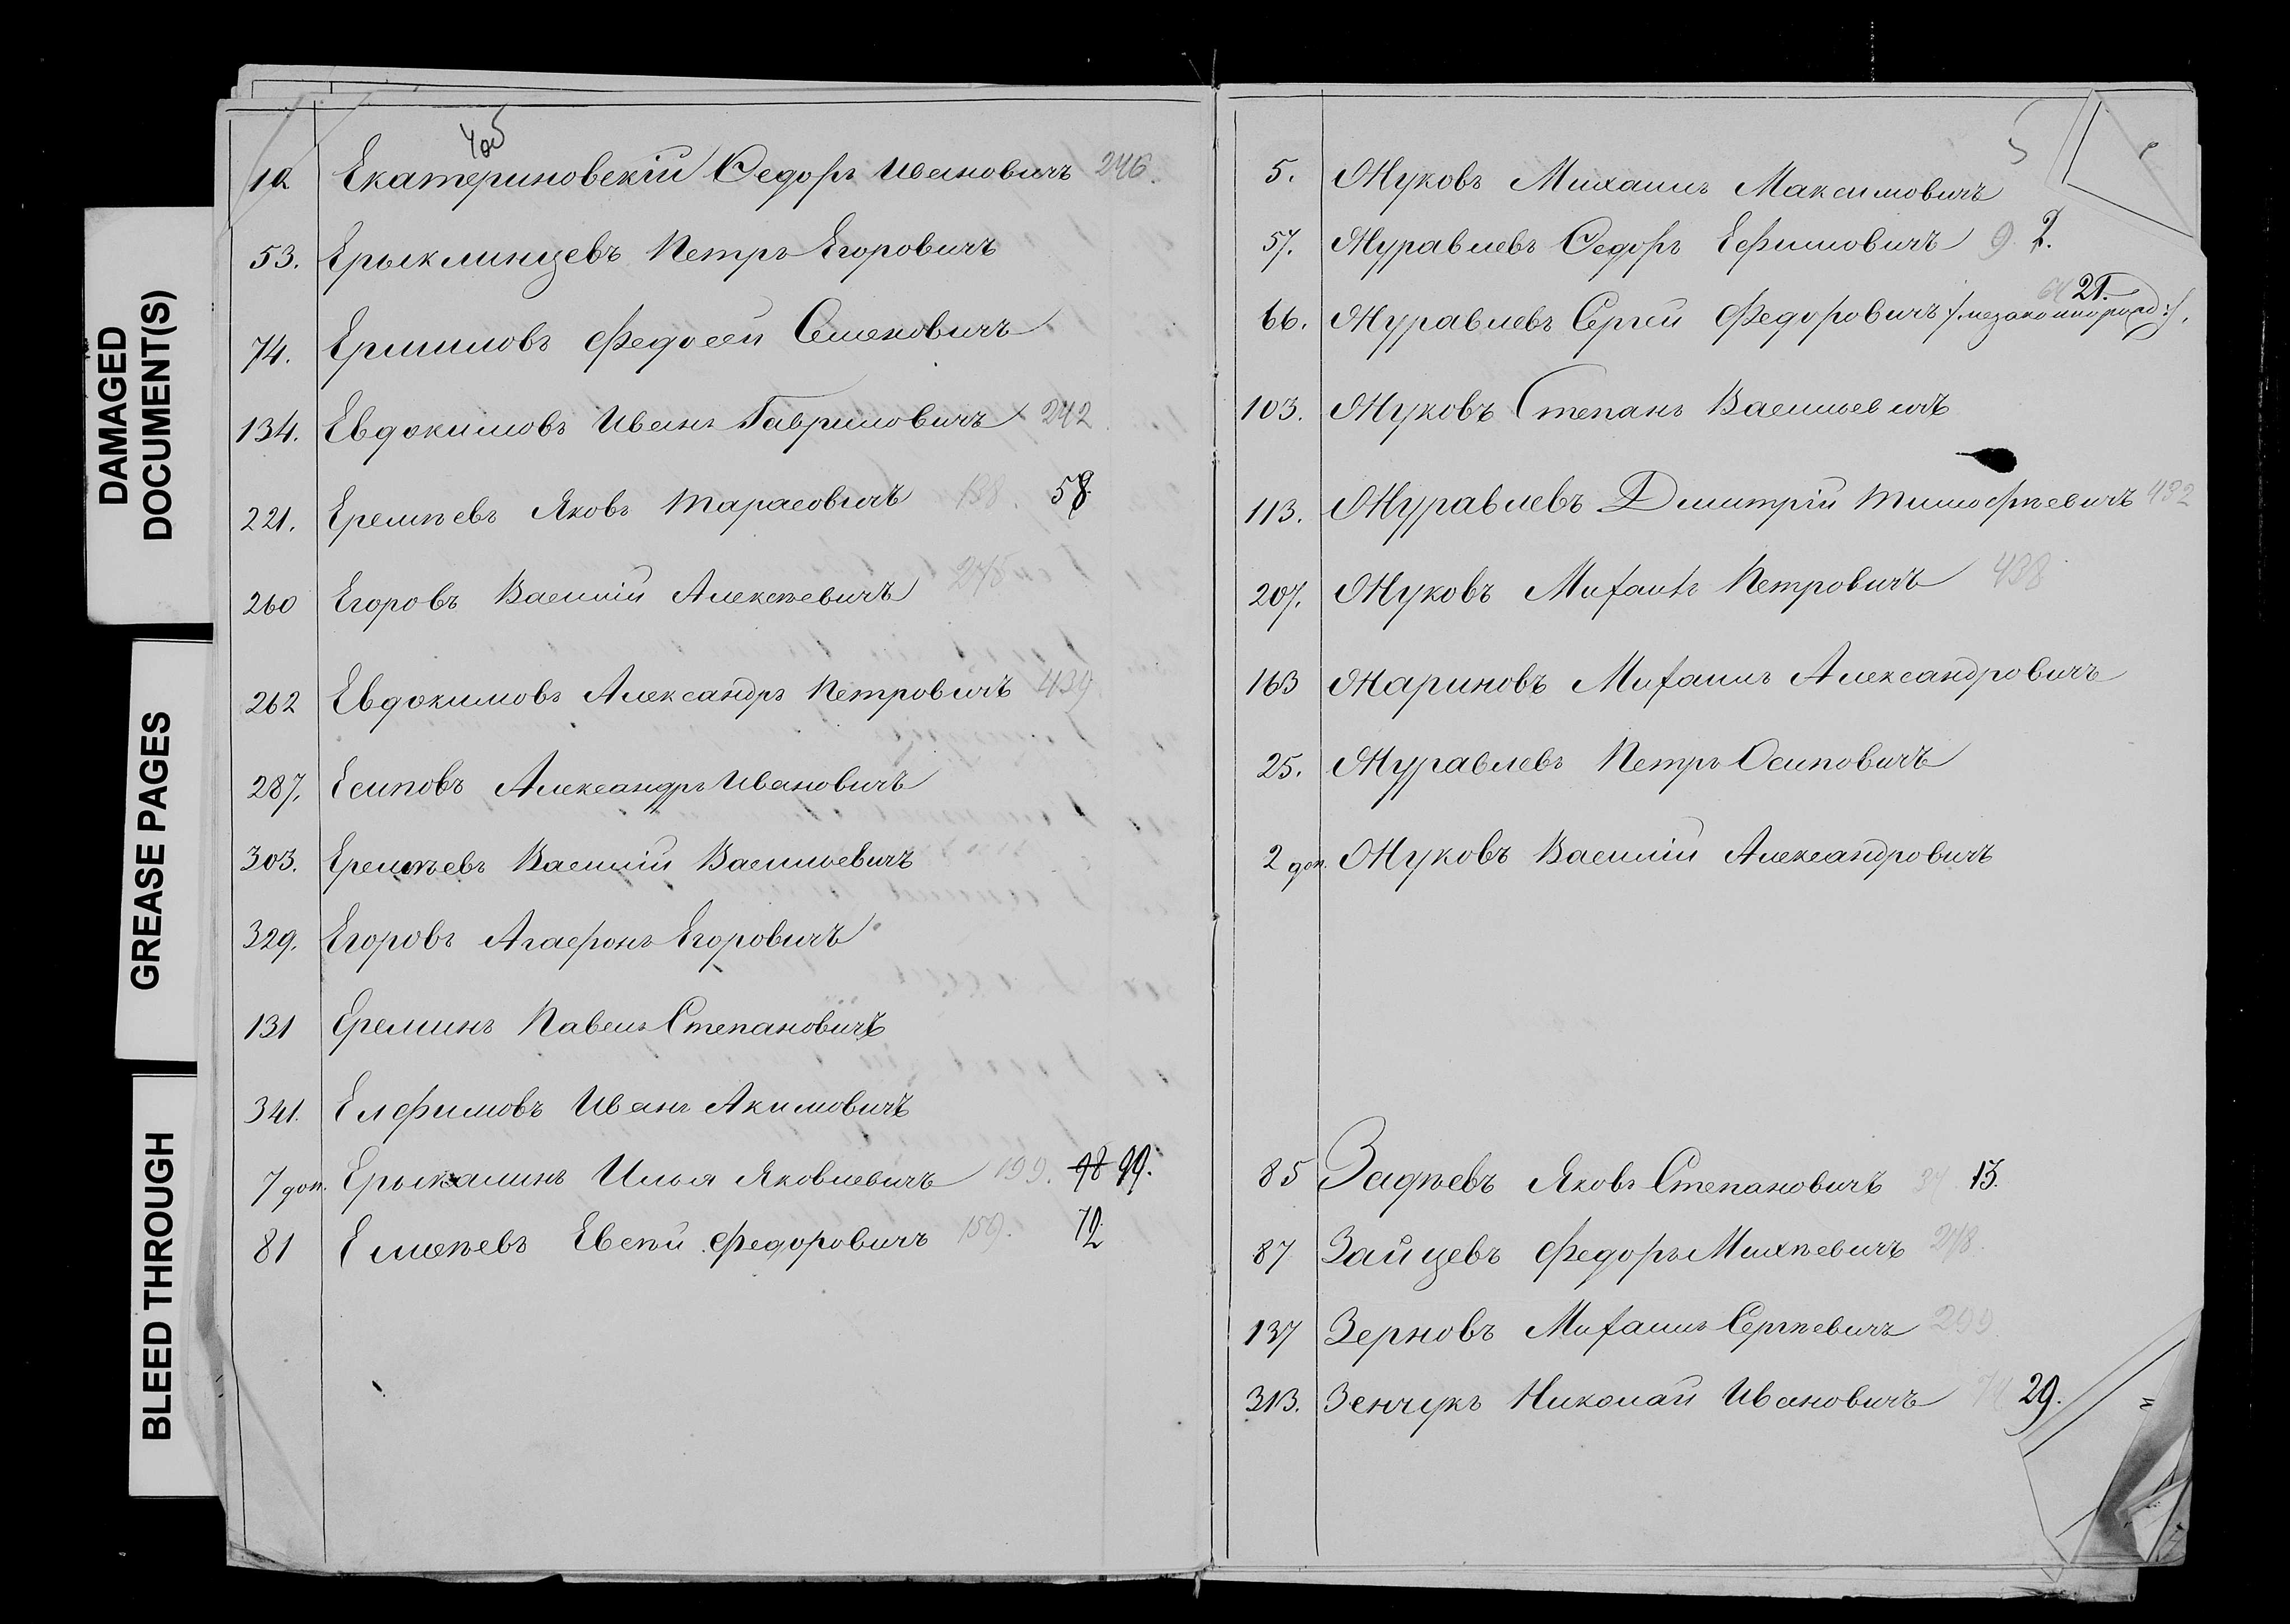 DAMAGED
DOCUMENT(S)
GREASE PAGES
BLEED THROUGH
12 Екатериновскій Ѳедоръ Ивановичъ 246.
53. Ерыклинцевъ Петръ Егоровичъ
74. Ермиловъ Федосей Семеновичъ
134. Евдокимовъ Иванъ Гавриловичъ 242
221. Еремѣевъ Яковъ Тарасовичъ 138. 58.
260 Егоровъ Василій Алексѣевичъ 245
262 Евдокимовъ Александръ Петровичъ 439
287. Есиповъ Александръ Ивановичъ
303. Еремѣевъ Василій Васильевичъ
329. Егоровъ Агафонъ Егоровичъ
131 Ереминъ Павелъ Степановичъ
341. Елфимовъ Иванъ Акимовичъ
7 доп. Ерыкалинъ Илья Яковлевичъ 199. 98 99.
81 Евсѣй Федоровичъ 159. 72
5. Жуковъ Михаилъ Максимовичъ
57. Журавлевъ Ѳедоръ Ефимовичъ 9. 2.
66. Журавлевъ Сергѣй Федоровичъ /:незаконнорожд:/. 64 21.
103. Жуковъ Степанъ Васильевичъ
113. Журавлевъ Дмитрій Тимофѣевичъ 432
207. Жуковъ Михаилъ Петровичъ 438
163 Жариновъ Михаилъ Александровичъ
25. Журавлевъ Петръ Осиповичъ
2 доп. Жуковъ Василій Александровичъ
85 Задѣевъ Яковъ Степановичъ 34 15.
87 Зайцевъ Федоръ Михѣевичъ 248.
137 Зерновъ Михаилъ Сергѣевичъ
313. Зенчукъ Николай Ивановичъ 29.